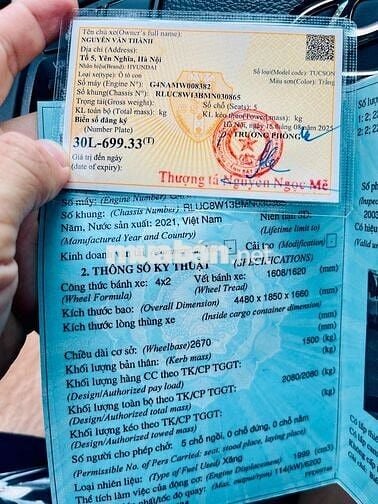 Tên chủ xe(Owner's full name):
NGUYỄN VĂN THÀNH
Địa chỉ (Address):
Tổ 5, Yên Nghĩa, Hà Nội
Nhãn hiệu(Brand): HYUNDAI
Số loại(Model code): TUCSON
Loại xe(type): Ô tô con
Màu sơn(Color): Trắng
Số máy (Engine N°): G4NAMW008382
Số khung(Chassis N°): RLUC8W13BMN030865
Trọng tải(Gross weight): Số chỗ (Seats): 5
KL toàn bộ (Total mass): kg KL kéo theo(Towed mass): kg
Biển số đăng ký
(Number Plate)
Hà Nội, ngày 15/08/2025
TRƯỞNG PHÒNG
30L-699.33(T)
Giá trị đến ngày
(date of expiry):
Thượng tá Nguyễn Ngọc Mễ
Số máy: (Engine Number)
Số khung: (Chassis Number) RLUC8W13BMN030865
Năm, Nước sản xuất: 2021, Việt Nam Niên hạn SD:
(Manufactured Year and Country) (Lifetime limit to)
Kinh doanh Cải tạo (Modification)
muaban.net
2. THÔNG SỐ KỸ THUẬT (SPECIFICATIONS)
Công thức bánh xe: 4x2 Vết bánh xe: 1608/1620 (mm)
(Wheel Formula) (Wheel Tread)
Kích thước bao: (Overall Dimension) 4480 x 1850 x 1660 (mm)
Kích thước lòng thùng xe (Inside cargo container dimension)
(mm)
Chiều dài cơ sở: (Wheelbase)2670 (mm)
Khối lượng bản thân: (Kerb mass) 1500 (kg)
Khối lượng hàng CC theo TK/CP TGGT: (kg)
(Design/Authorized pay load)
Khối lượng toàn bộ theo TK/CP TGGT: 2080/2080 (kg)
(Design/Authorized total mass)
Khối lượng kéo theo TK/CP TGGT: (kg)
(Design/Authorized towed mass)
Số người cho phép chở: 5 chỗ ngồi, 0 chỗ đứng, 0 chỗ nằm
(Permissible No. of Pers Carried: seat, stood place, laying place)
Loại nhiên liệu: (Type of Fuel Used) Xăng
Thể tích làm việc của động cơ: (Engine Displacement) 1999 (cm3)